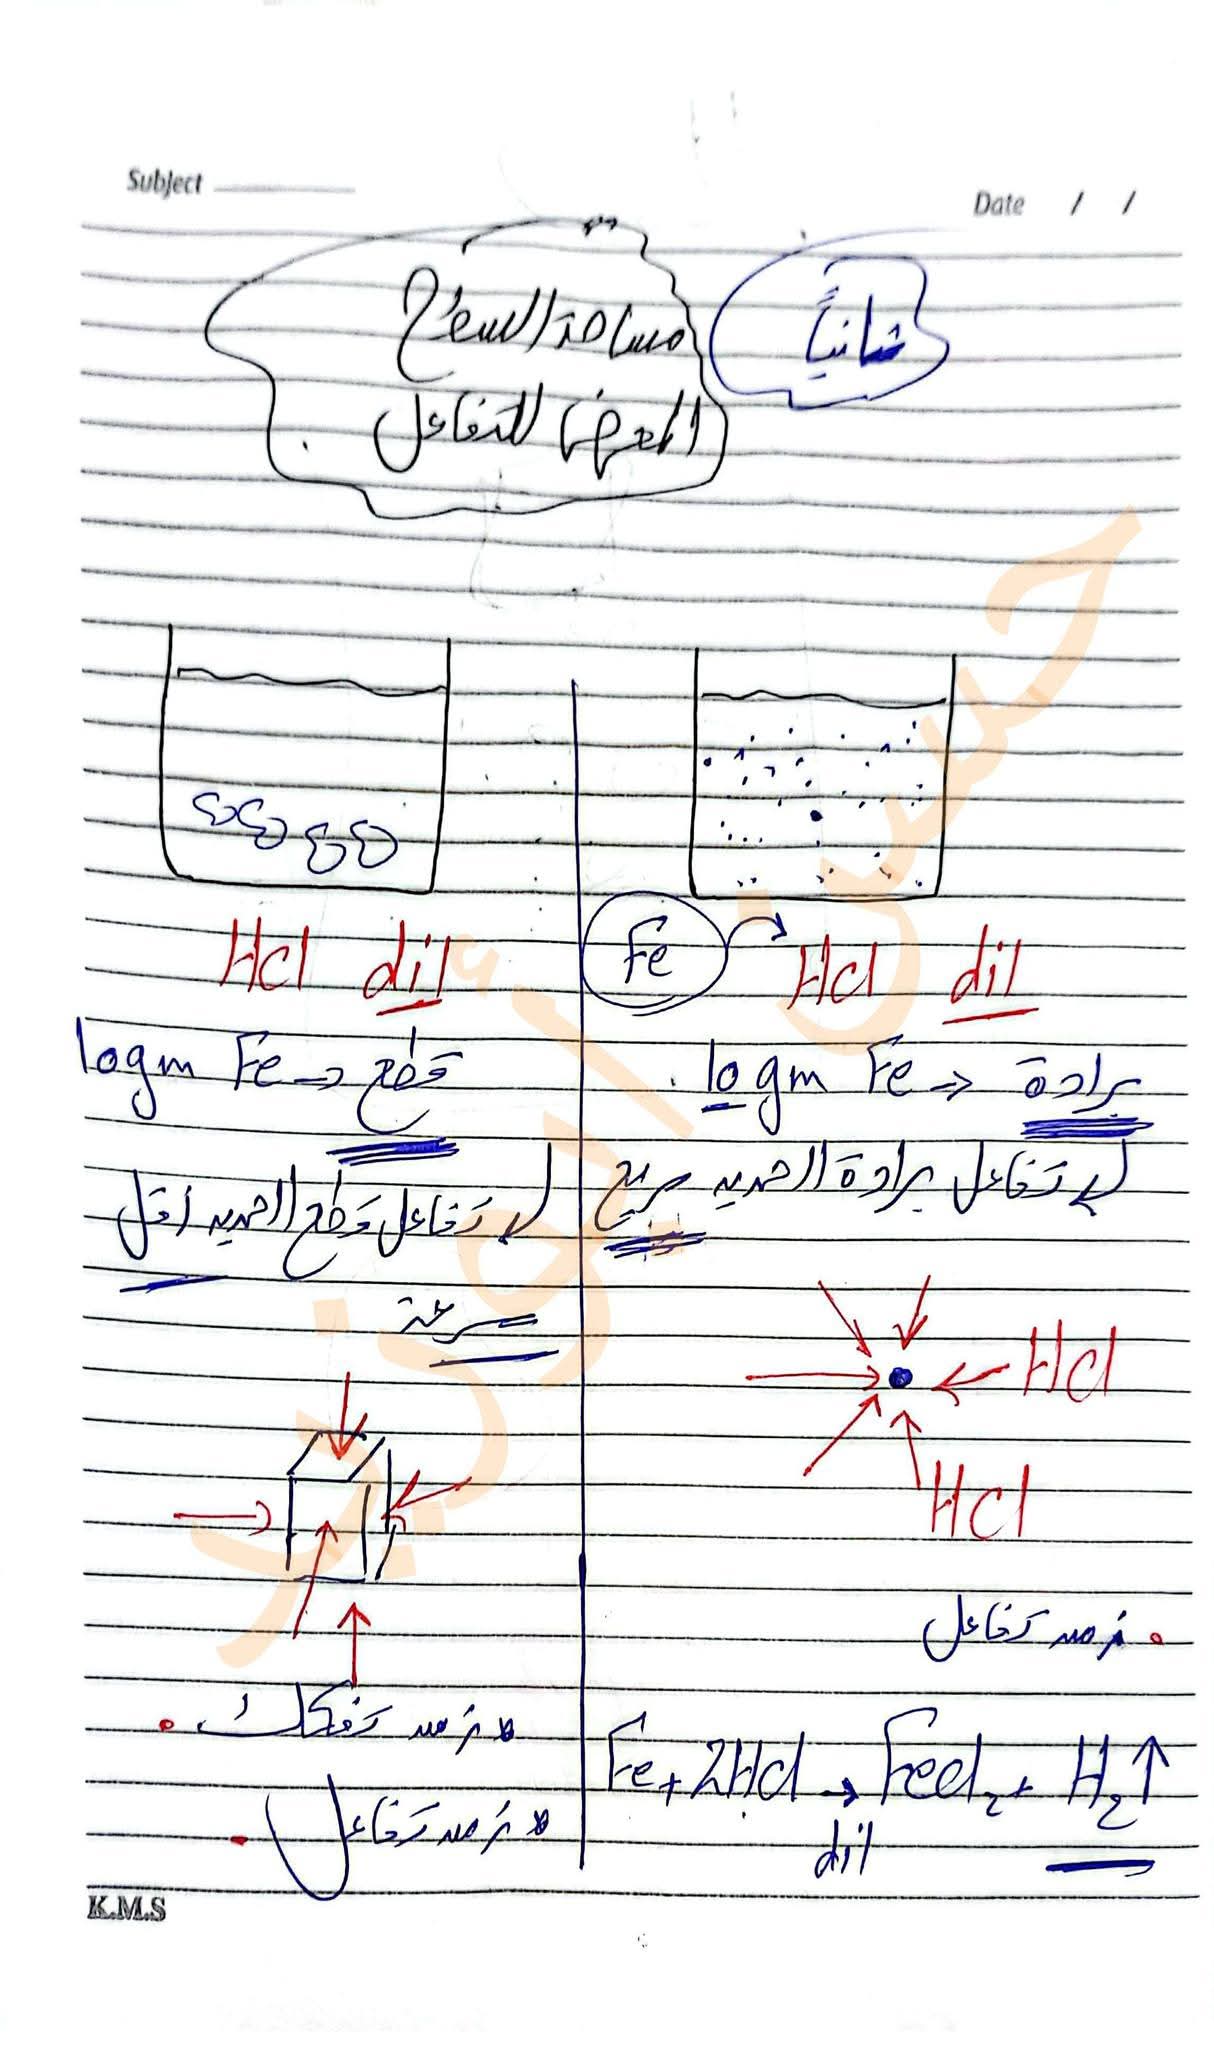 Subject
Date / /
ثانياً
مساحة السطح
المعرض للتفاعل
Fe
HCl dil
10gm Fe → برادة
تفاعل برادة الحديد سريع
HCl
HCl
زمن تفاعل
Fe + 2HCl → FeCl₂ + H₂↑
dil
HCl dil
10gm Fe → قطع
تفاعل قطع الحديد أقل
سرعة
* زمن تفكك
* زمن تفاعل
K.M.S
حسن أبوزيد